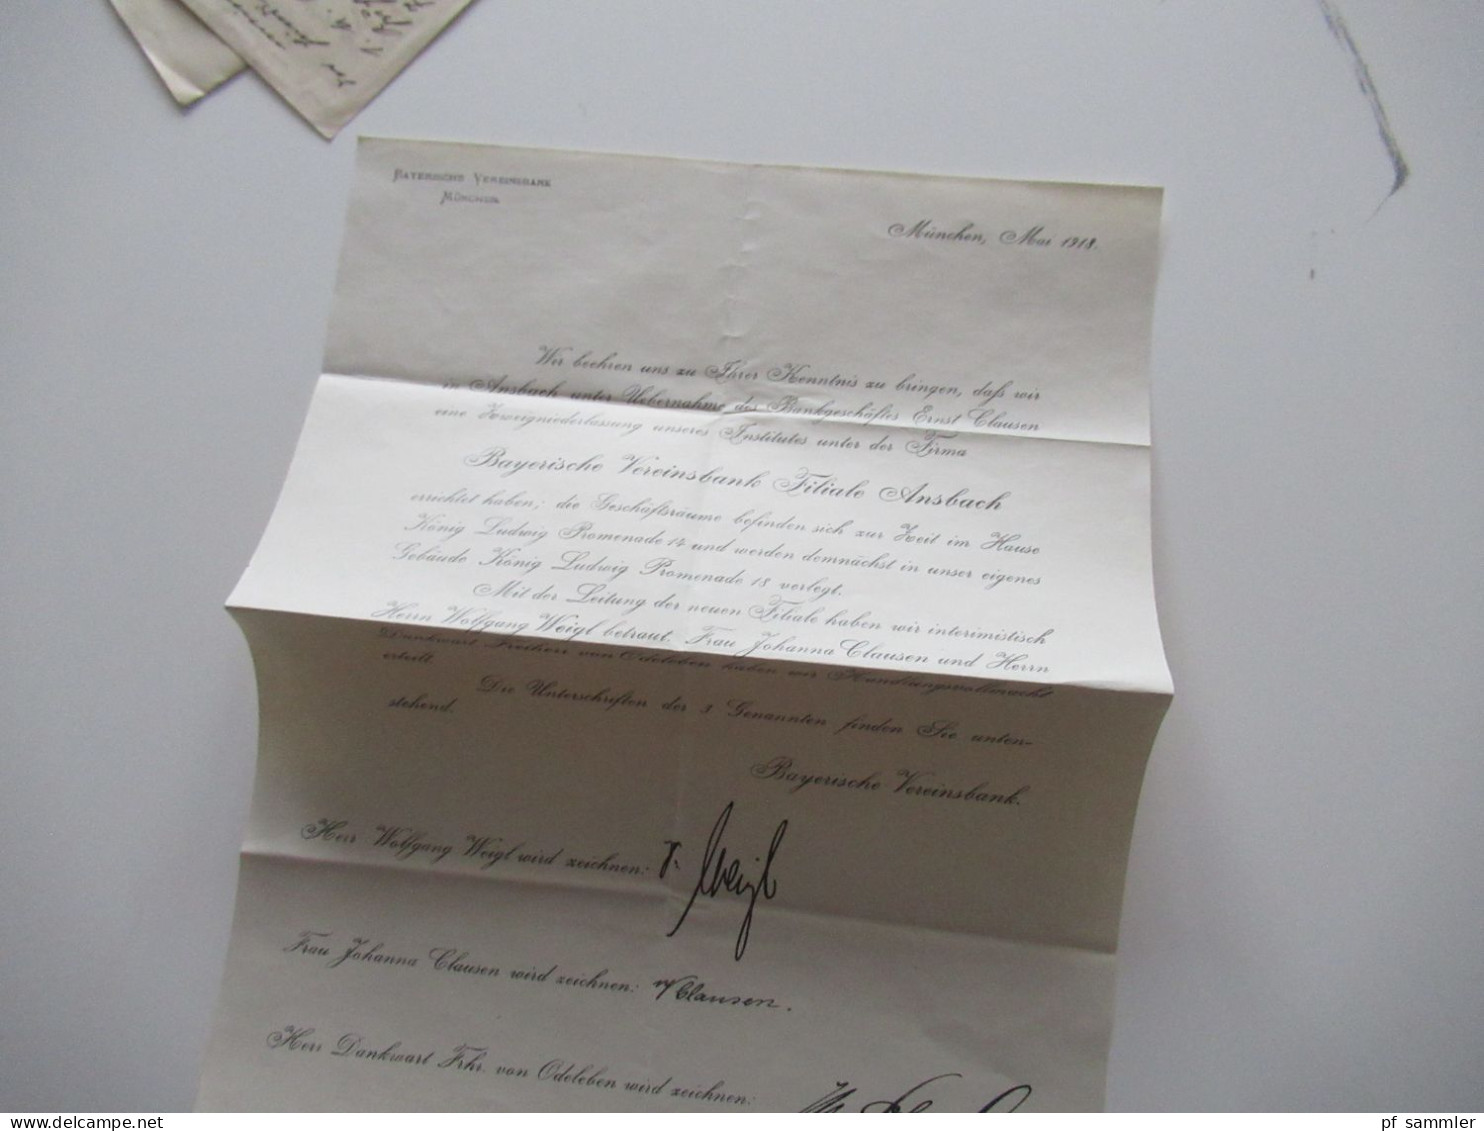 BAYERISCHE VEREINSBANK
MÜNCHEN
München, Mai 1918.
Wir beehren uns zu Ihrer Kenntnis zu bringen, daß wir
in Ansbach unter Uebernahme des Bankgeschäftes Ernst Clausen
eine Zweigniederlassung unseres Institutes unter der Firma
Bayerische Vereinsbank Filiale Ansbach
errichtet haben; die Geschäftsräume befinden sich zur Zeit im Hause
König Ludwig Promenade 14 und werden demnächst in unser eigenes
Gebäude König Ludwig Promenade 18 verlegt.
Mit der Leitung der neuen Filiale haben wir interimistisch
Herrn Wolfgang Weigl betraut. Frau Johanna Clausen und Herrn
Dankwart Freiherr von Odeleben haben wir Handlungsvollmacht
erteilt.
Die Unterschriften der 3 Genannten finden Sie unten-
stehend.
Bayerische Vereinsbank.
Herr Wolfgang Weigl wird zeichnen: Weigl
Frau Johanna Clausen wird zeichnen: Clausen.
Herr Dankwart Frhr. von Odeleben wird zeichnen:
pf_sammler